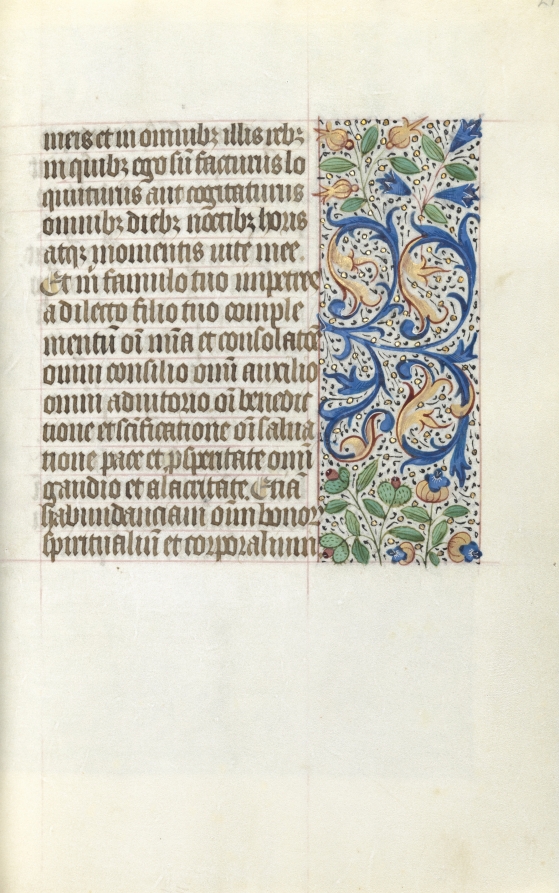 meis et in omnibꝫ illis rebꝫ
in quibꝫ ego sū facturus lo
quuturus aut cogitaturus
omnibꝫ diebꝫ noctibꝫ horis
atqꝫ momentis uite mee.
Et m̄ famulo tuo impetres
a dilecto filio tuo comple
mentū oī mīa et consolatōe
omni consilio omni auxilio
omni adiutorio oī benedic
tione et sc̄ificatione oī salua
tione pace et ꝓsperitate omni
gaudio et alacritate. Etiā
habundanciam oīm bonoꝝ
spiritualiū et corporalium.